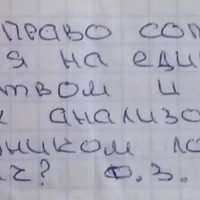 ПРАВО СОП
Я НА ЕДИН
ТВОМ И
АНАЛИЗО
НИКОМ ЛО
? Ф.З.